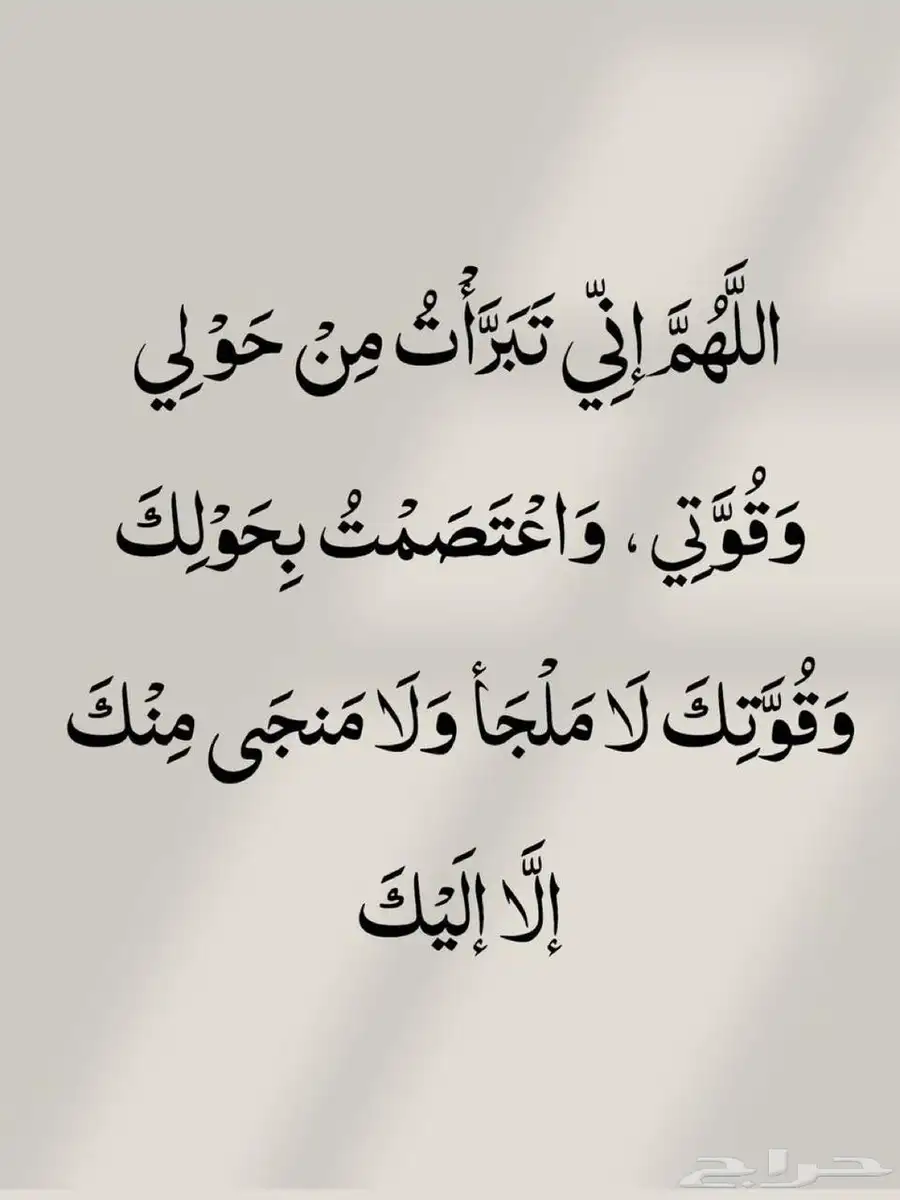 اللَّهُمَّ إِنِّي تَبَرَّأْتُ مِنْ حَوْلِي
وَقُوَّتِي، وَاعْتَصَمْتُ بِحَوْلِكَ
وَقُوَّتِكَ لَا مَلْجَأَ وَلَا مَنجَى مِنْكَ
إلَّا إلَيْكَ
حراج